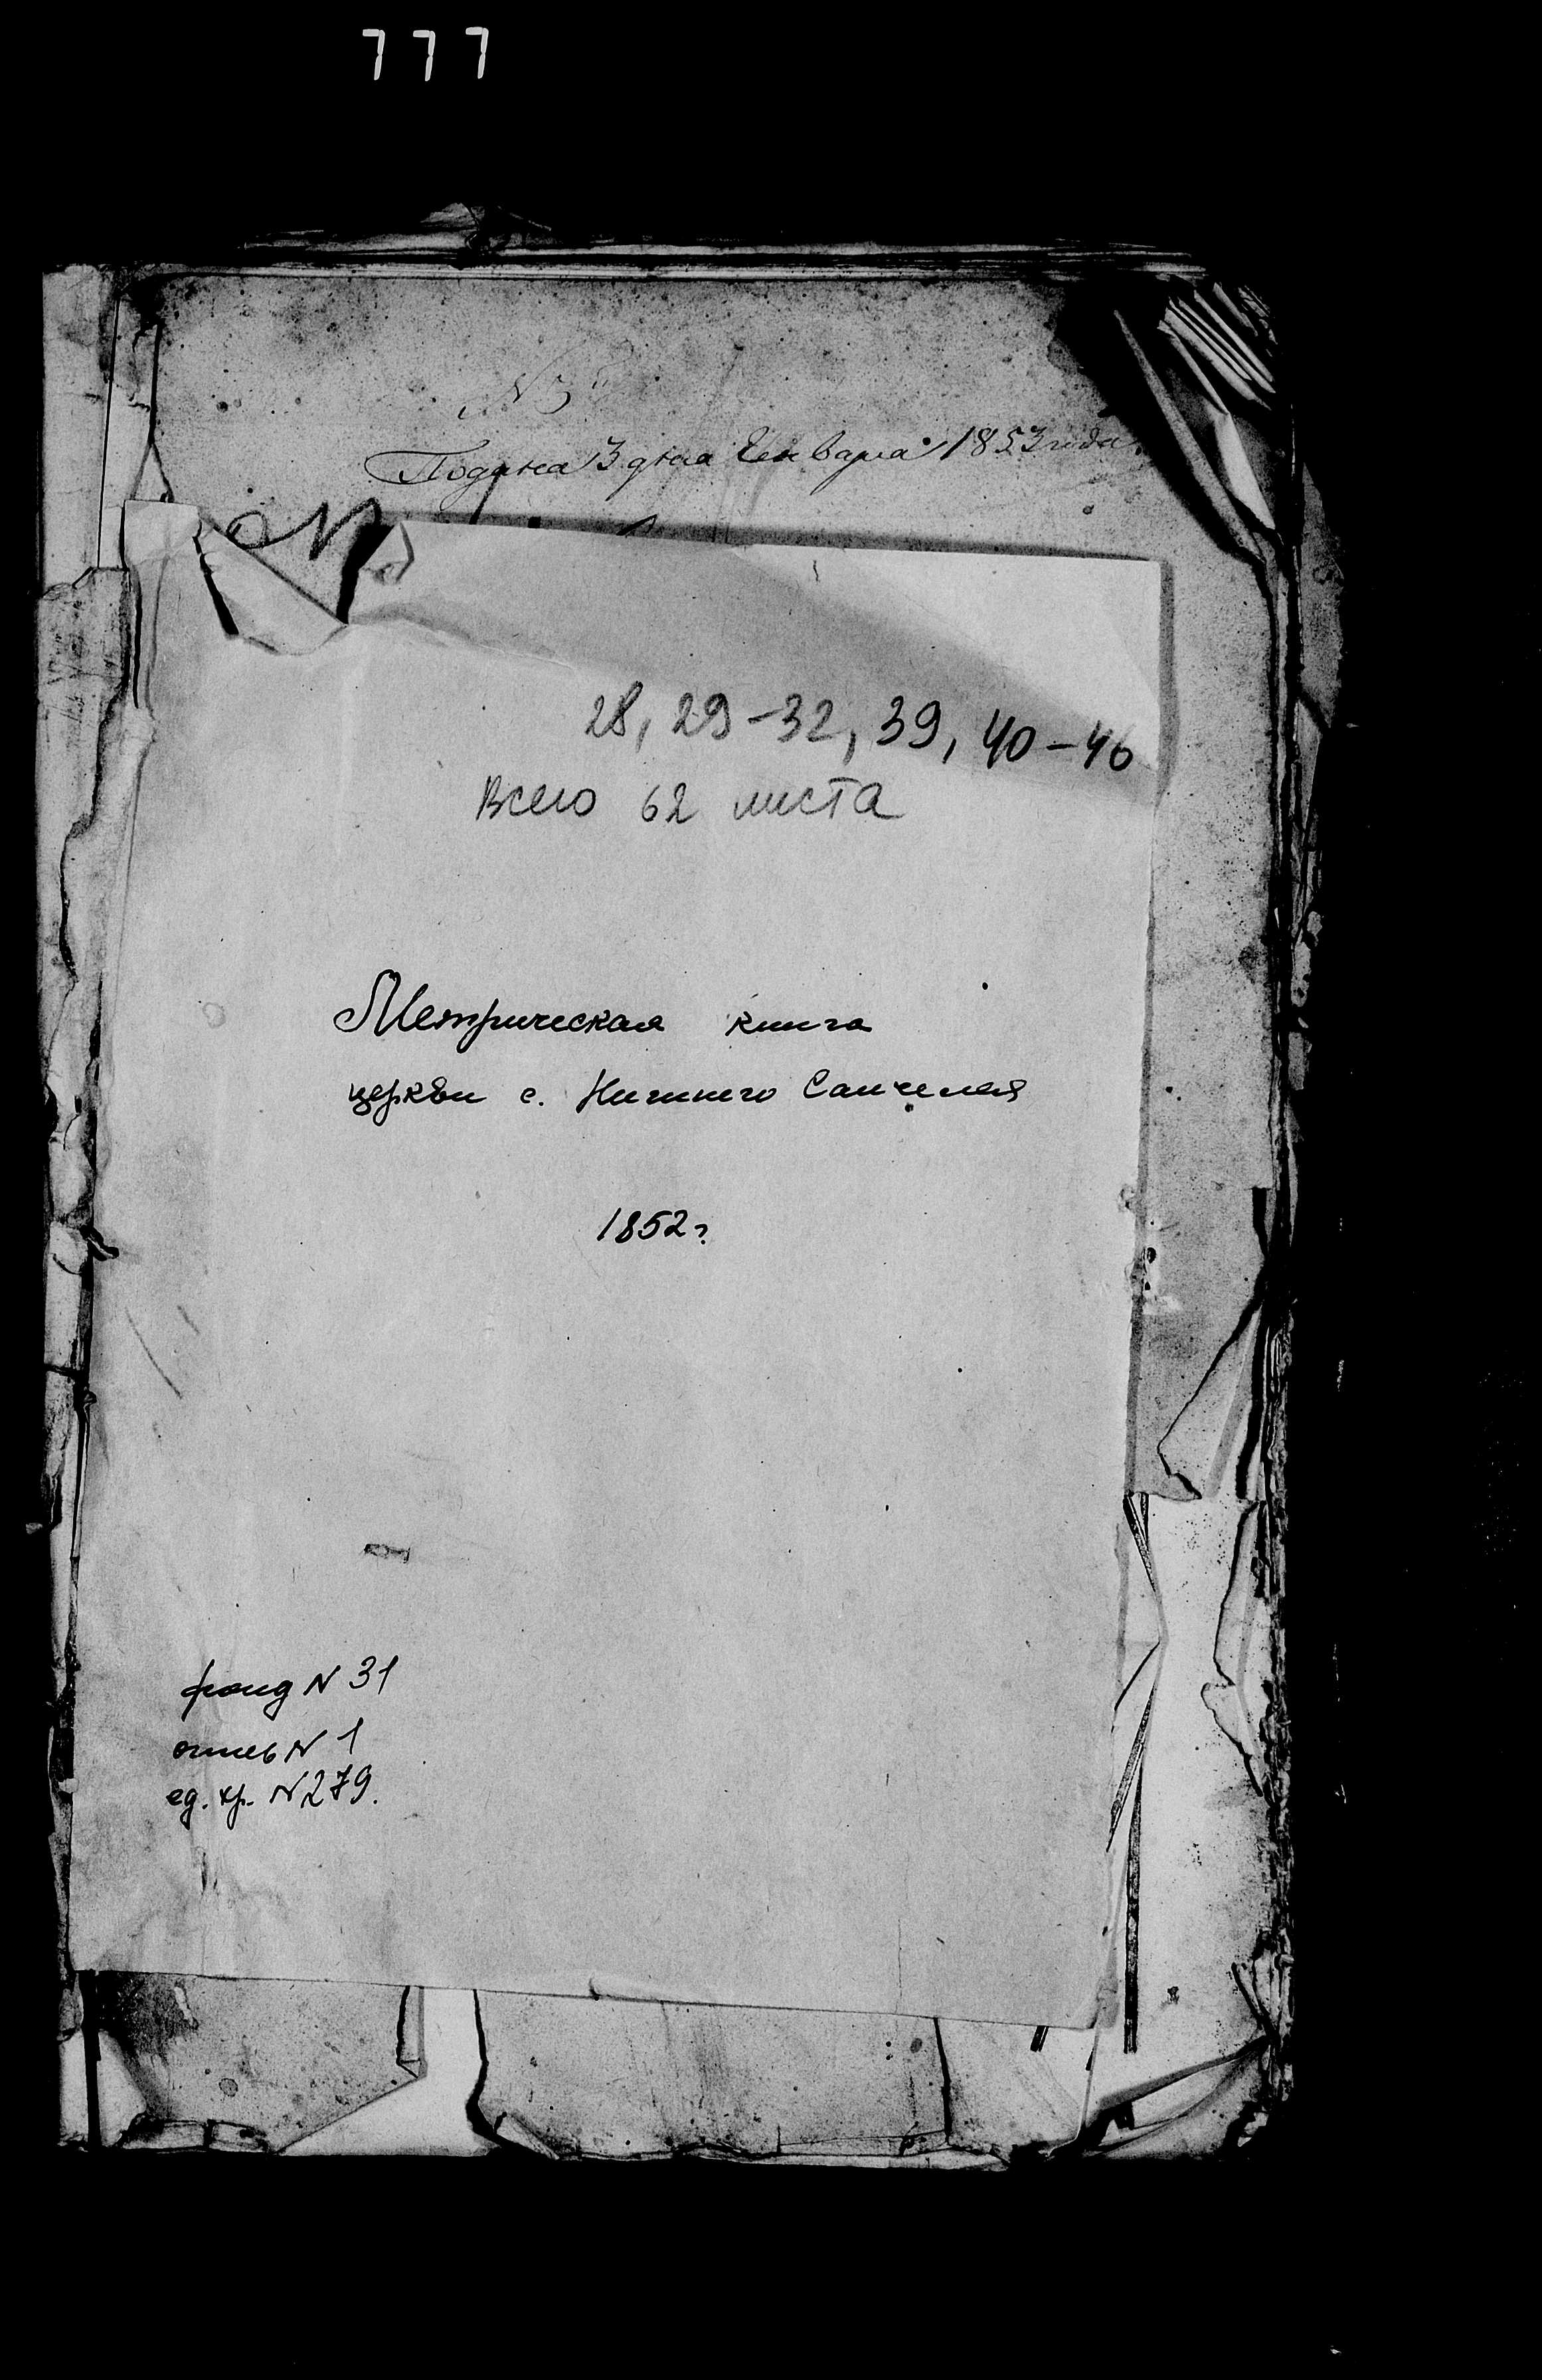 777
№ 3
Подана 3 дня Генваря 1853 года.
28, 29-32, 39, 40-46
Всего 62 листа
Метрическая книга
церкви с. Нижнего Санчелея
1852 г.
фонд N 31
опись N 1
ед. хр. N 279.